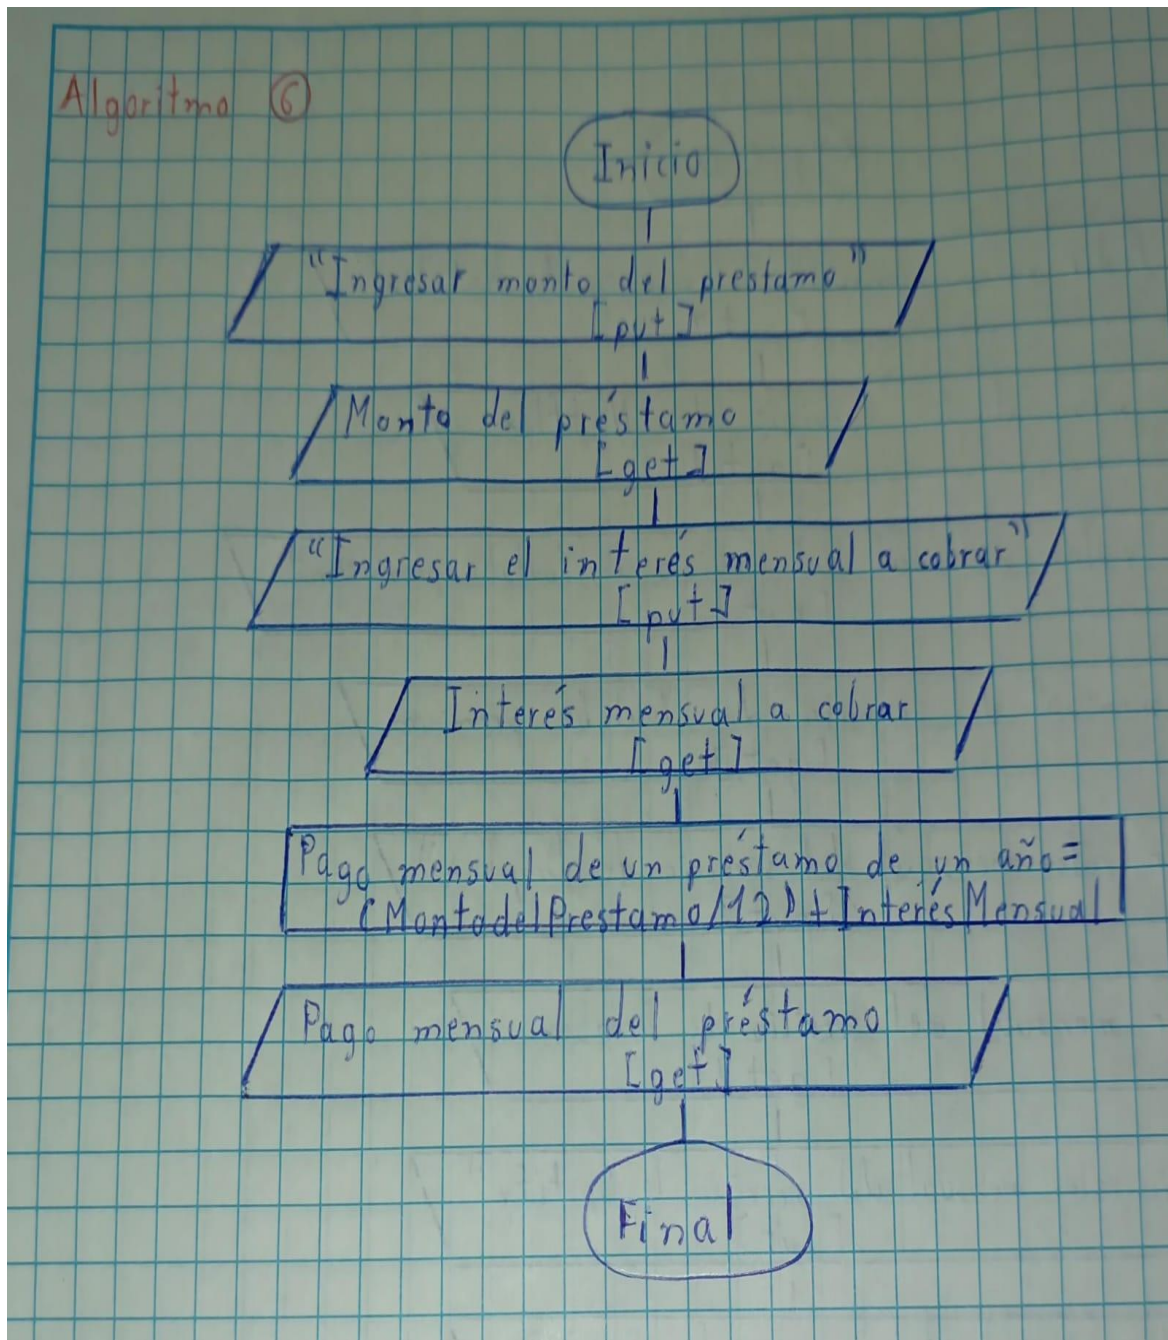 Algoritmo 6
Inicio
"Ingresar monto del prestamo"
[put]
Monto del préstamo
[get]
"Ingresar el interés mensual a cobrar"
[put]
Interés mensual a cobrar
[get]
Pago mensual de un préstamo de un año=
(MontodelPrestamo/12)+InterésMensual
Pago mensual del préstamo
[get]
Final